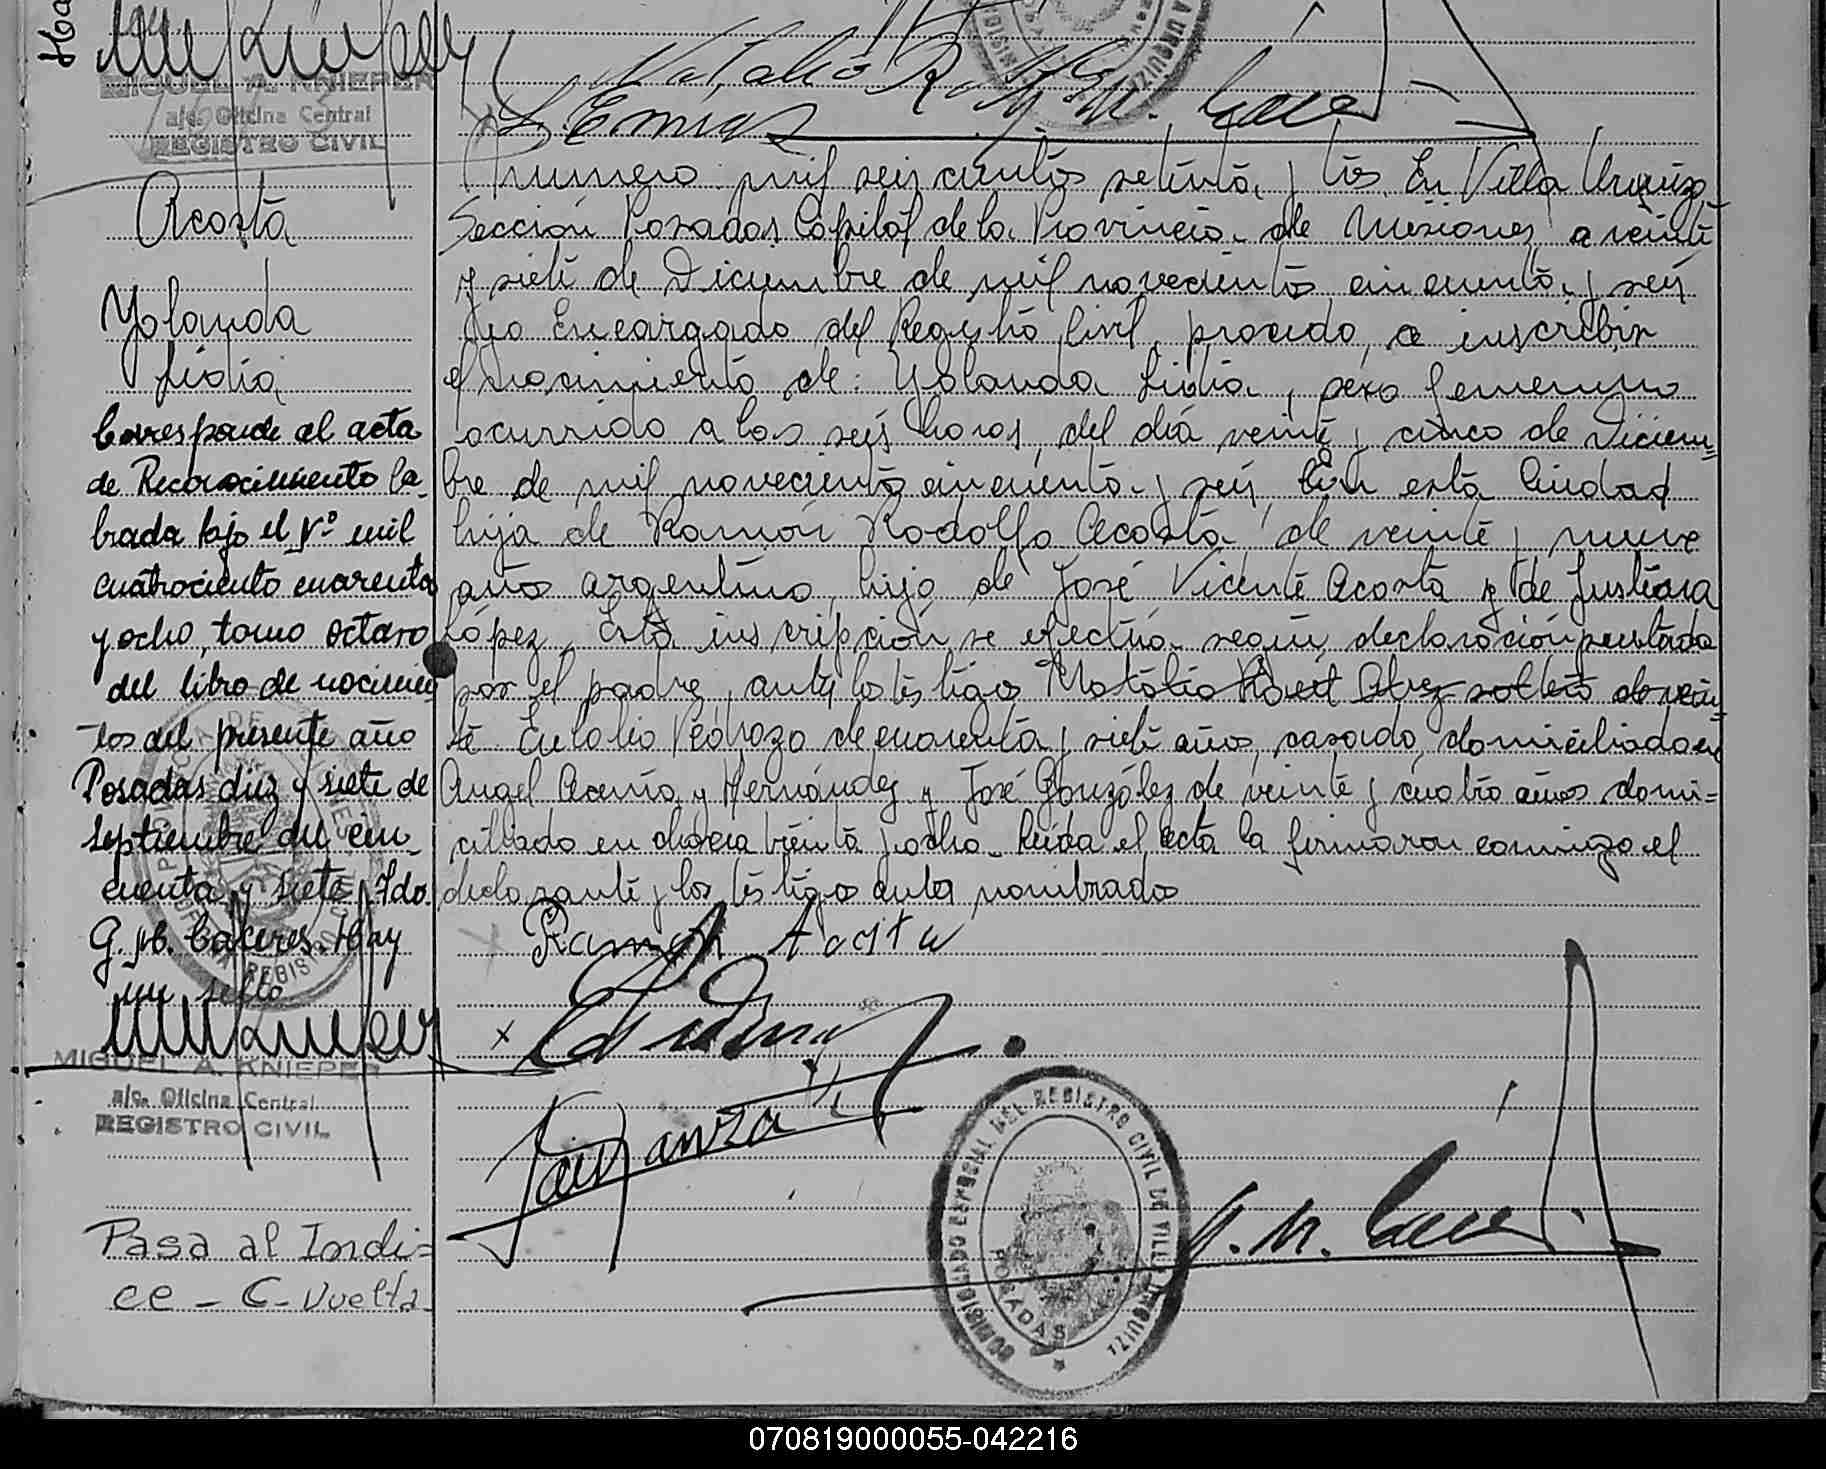 MIGUEL A. KNIEPER
a/c. Oficina Central
REGISTRO CIVIL
Acosta
Yolanda
Lidia
Corresponde al acta
de Reconocimiento la-
brada bajo el Nº mil
cuatrociento cuarenta
y ocho, tomo octavo
del libro de nacimien
tos del presente año
Posadas diez y siete de
septiembre del cin-
cuenta y siete. Fdo.
G. M. Caceres. Hay
un sello
MIGUEL A. KNIEPER
a/c. Oficina Central
REGISTRO CIVIL
Pasa al Indi=
ce - C - Vuelta
Numero: mil seis cientos setenta y tres. En Villa Urquiza
Sección Posadas Capital de la Provincia de Misiones a veinte
y siete de Diciembre de mil novecientos cincuenta y seis
yo Encargado del Registro Civil, procedo, a inscribir
el nacimiento de: Yolanda Lidia, sexo femenino
ocurrido a las seis horas, del día veinte y cinco de Diciem=
bre de mil novecientos cincuenta y seis, en esta Ciudad
hija de Ramón Rodolfo Acosta de veinte y nueve
años argentino, hijo de José Vicente Acosta y de Justiana
López. Esta inscripción se efectúa según declaración prestada
por el padre, antes los testigos Natalio soltero de vein=
te Eulalio Pedrozo de cuarenta y siete años, casado, domiciliado en
Angel Acuña y Hernández y José González de veinte y cuatro años domi=
ciliado en chacra treinta y ocho. Leída el acta la firmaron conmigo el
declarante y los testigos antes nombrados
Ramon Acosta
COMISIONADO ESPECIAL DEL REGISTRO CIVIL DE VILLA URQUIZA
POSADAS
070819000055-042216